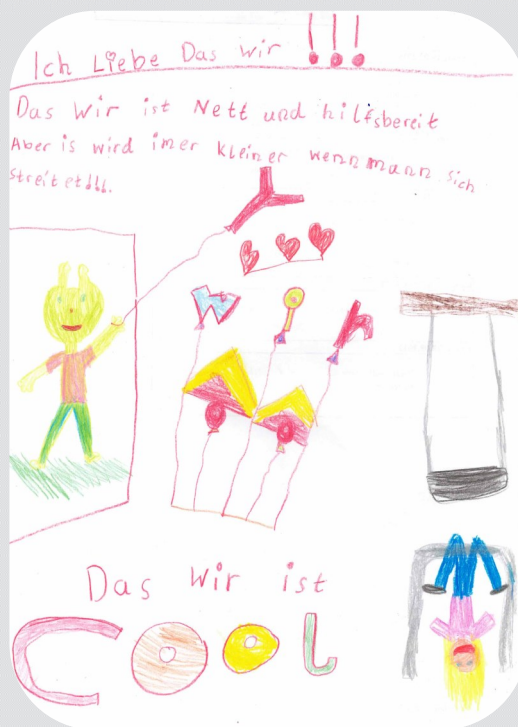 Ich Liebe Das wir !!!
Das Wir ist Nett und hilfsbereit
Aber is wird imer kleiner wennmann sich
Wir
Das Wir ist
COOL